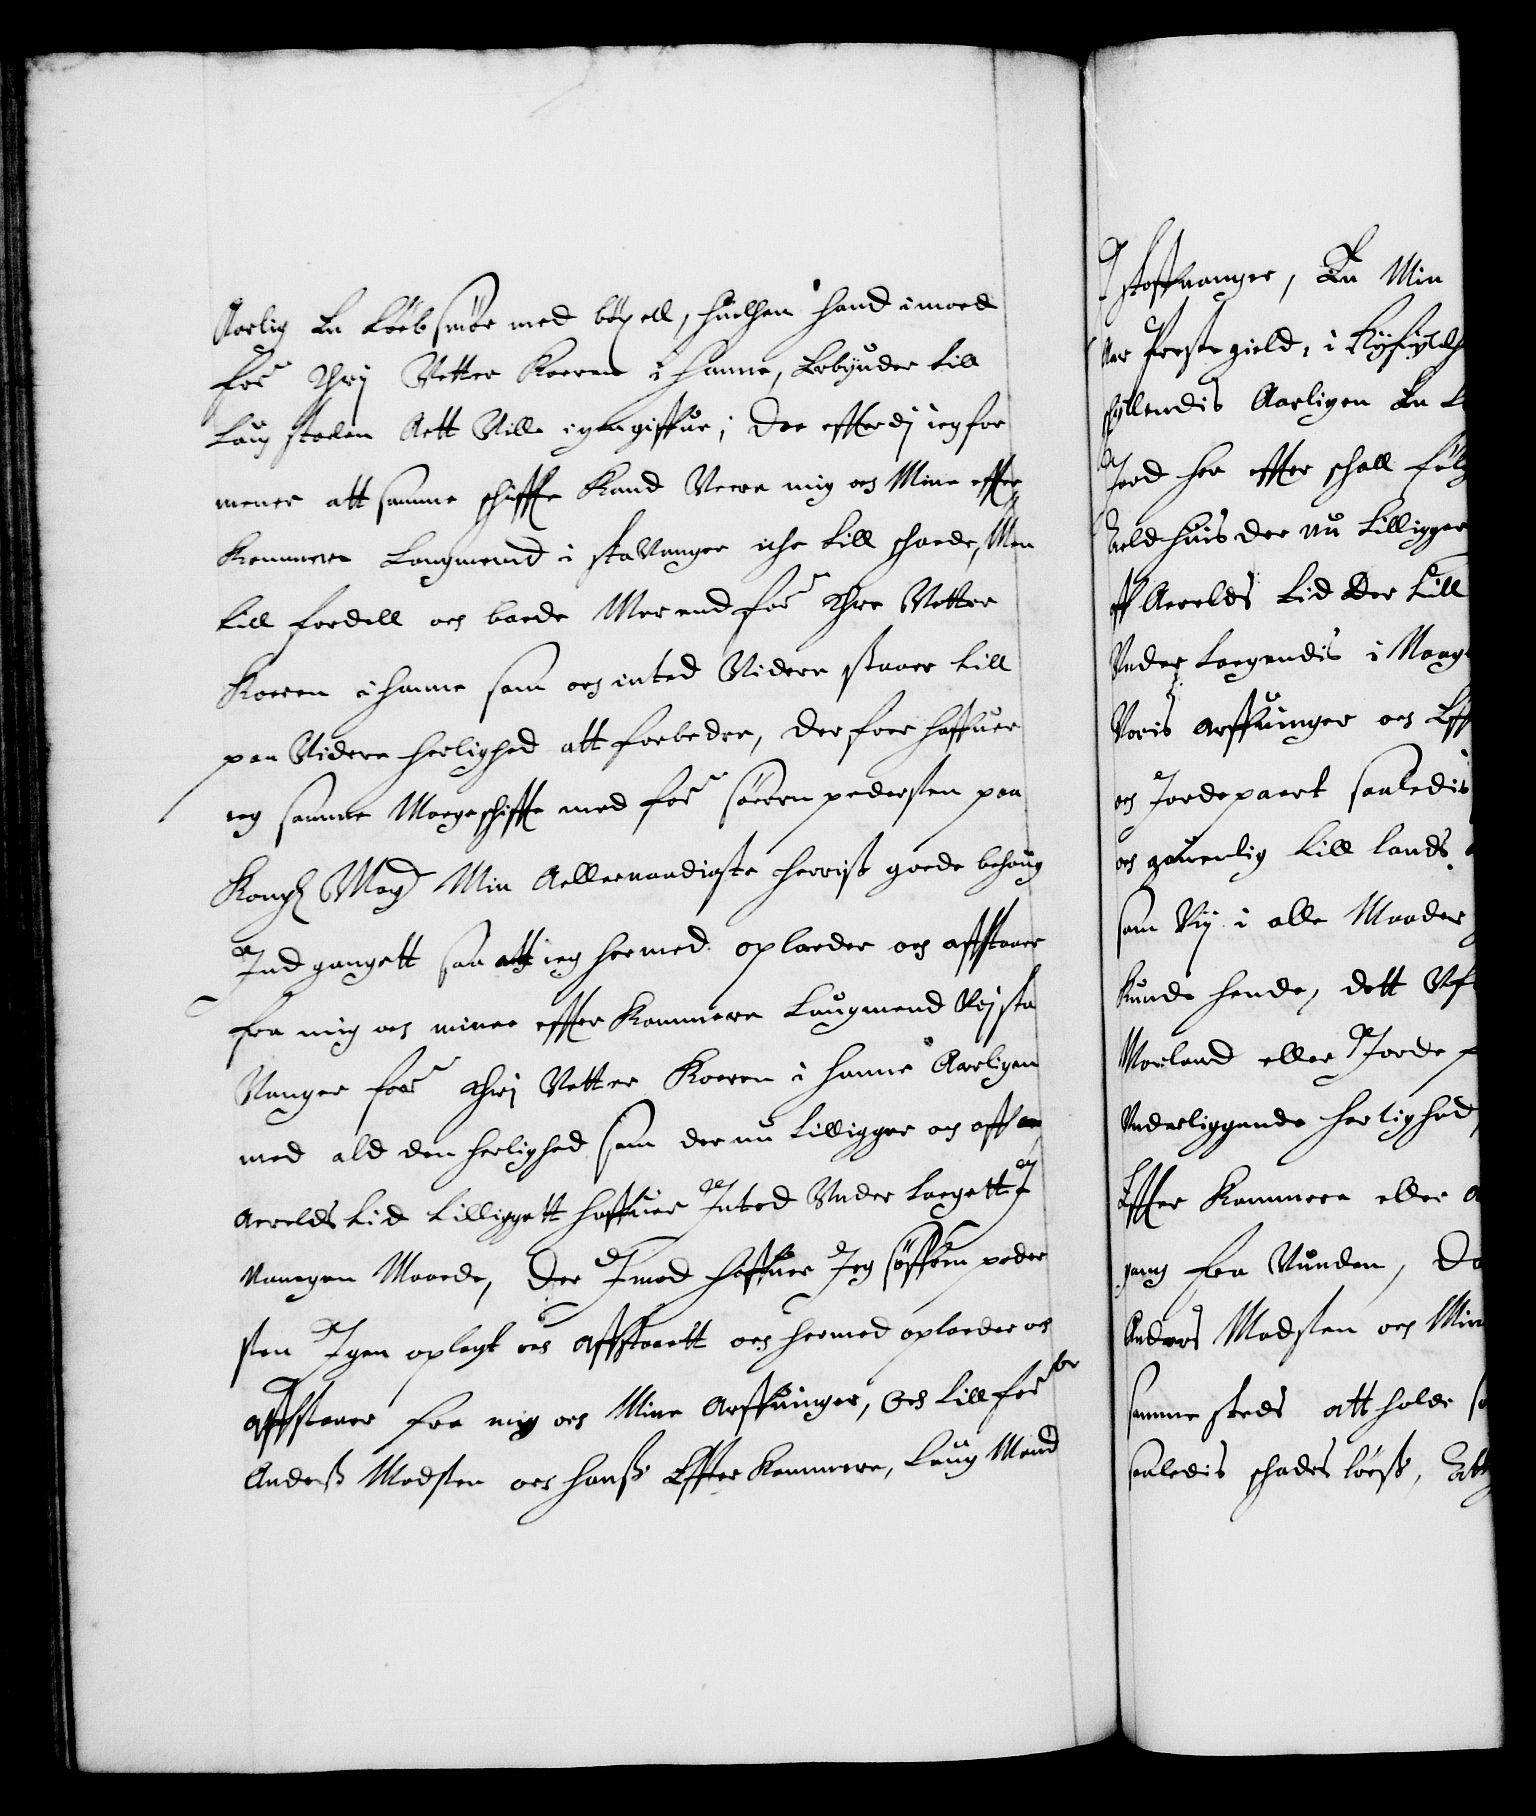 Aarlig En Løeb smør med bøxell, huilchen hand imoed
for thrj Vetter Korenn i hanne, Erbyuder till
Laug stolen Att Ville igengiffue; Daa effterdj ieg for
mener att samme schiffte Kand Verre mig och Mine effter
Kommere Laugmend i staVanger iche till schaede, Men
till fordell och baede Mer end for thre Vetter
Korenn i hanne som och inted Videre staaer till
paa Videre herlighed att forbedre, der foer haffuer
ieg samme Mageschiffte med for Søeren pedersen paa
Kong Mayt Min Allernaadigste herris goede behaug
Ind gangett saa att ieg hermed oplader och affstaaer
fra mig och minne effter Kommere Laugmend Vdj sta
Vanger for thrj Vetter Koren i hanne Aarligen
med ald den herlighed som der nu tilligger och aff
Arrelds tid tilligett haffuer Inted Vnder taegett I
Naaegen Maade, Der Imod haffuer Jeg Søffren peder
sen Igen oplagt och affstaaett och hermed oplader och
affstaaer fra mig och Mine Arffuinger, Och till for
Anderss Madsen och hanss Effter Kommere, Laug Mend
I staffuanger, En Min
Prestegield, i Ryfylche
schyllendis Aarligen En
Jord her effter schall
der nu tilligger
aff Arrelds tid der till
Vnder taegendis i
Voris arffuinger och
och Jordepart saaledis
och gauenlig till lands
som Vij i alle Maader
Kunde hende, dett
Morland eller Jorde
Vnderliggende herlighed
Effter Kommere eller
gang fra Vunden,
Anders Madsen och
samme steds att holde
saaledis schades løess,